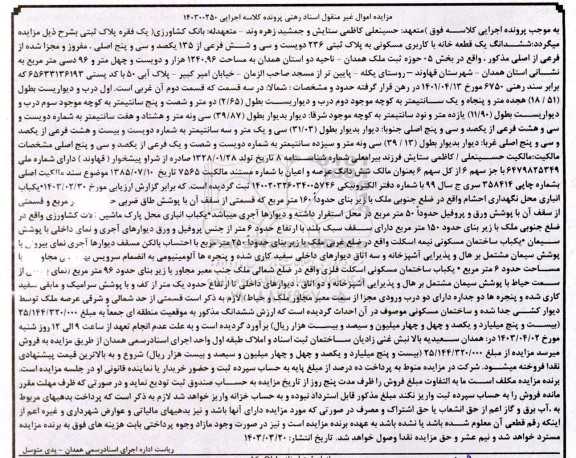 مزایده اموال غیر منقول اسناد رهنی پرونده کلاسه اجرایی ۱۴۰۳۰۰۲۵۰
به موجب پرونده اجرایی کلاسه فوق )متعهد: حسینعلی کاظمی ستایش و جمشید زهره وند - متعهدله: بانک کشاورزی( یک فقره پلاک ثبتی بشرح ذیل مزایده
میگردد:ششدانگ یک قطعه خانه با کاربری مسکونی به پلاک ثبتی ۲۳۶ دویست و سی و شش فرعی از ۱۳۵ یکصد و سی و پنج اصلی ، مفروز و مجزا شده از
فرعی از اصلی مذکور ، واقع در بخش ۰۵ حوزه ثبت ملک همدان - ناحیه دو استان همدان به مساحت ۱۲۴۰.۹۶ هزار و دویست و چهل متر و ۹۶ دسی متر مربع به
نشانی استان همدان - شهرستان قهاوند -روستای یکله - پایین تر از مسجد صاحب الزمان - خیابان امیر کبیر - پلاک آبی ۵۰ با کد پستی ۶۵۶۳۳۱۳۶۱۹۳ که
برابر سند رهنی ۶۷۵۰ مورخ ۱۴۰۱/۰۴/۱۳ در رهن قرار گرفته حدود و مشخصات : شمالا: در سه قسمت که قسمت دوم آن غربی است. اول درب و دیواریست بطول
(۱۸ / ۵۱) هجده متر و پنجاه و یک سانتیمتر به کوچه موجود دوم درب و دیواریست بطول (۲/۶۵) دو متر و شصت و پنج سانتیمتر به کوچه موجود سوم درب و
دیواریست بطول (۱۱/۹۰) یازده متر و نود سانتیمتر به کوچه موجود شرقا: دیوار بدیوار بطول (۳۹/۸۷) سی ونه متر و هشتاد و هفت سانتیمتر به شماره دویست و
سی و هشت فرعی از یکصد و سی و پنج اصلی جنوبا: دیوار بدیوار بطول (۳۱/۰۳) سی و یک متر و سه سانتیمتر به شماره دویست و بیست و هشت فرعی از یکصد
و سی و پنج اصلی غربا: دیوار بدیوار بطول (۱۳ / ۳۹) سی ونه متر و سیزده سانتیمتر به شماره دویست و شصت و یک فرعی از یکصد و سی و پنج اصلی مشخصات
مالکیت:مالکیت حسینعلی / کاظمی ستایش فرزند بیرامعلی شماره شناسنامه ۸ تاریخ تولد ۱۳۲۸/۰۱/۲۸ صادره از شراو پیشخوار ( قهاوند ) دارای شماره ملی
۶۴۷۹۸۲۵۳۴۹ با جز سهم ۶ از کل سهم ۶ بعنوان مالک شش دانگ عرصه و اعیان با شماره مستند مالکیت ۷۵۶۵ تاریخ ۱۳۸۵/۰۷/۱۰ موضوع سند مالکیت اصلی
بشماره چاپی ۳۵۸۴۱۴ سری ج سال ۹۹ با شماره دفتر الکترونیکی ۱۴۰۰۲۰۳۲۶۰۳۴۰۰۵۷۴۶ ثبت گردیده است. که برابر گزارش ارزیابی مورخ ۱۴۰۳/۰۲/۳۰ *یکباب
انباری محل نگهداری احشام واقع در ضلع جنوبی ملک با زیر بنای حدوداً ۱۶۰ متر مربع که قسمتی از سقف آن با پوشش طاق ضربی مربع و قسمتی
از سقف آن با پوشش ورق و پروفیل حدوداً ۵۰ متر مربع در محل استقرار داشته و دیوارها آجری میباشد*یکباب انباری محل پارک ماشین کشاورزی واقع در
ضلع جنوبی ملک با زیر بنای حدود ۱۵۰ متر مربع دارای سقف سبک بلند با ارتفاع حدود ۶ متر از جنس پروفیل و ورق دیوارهای آجری و نمای داخلی با پوشش
سیمان *یکباب ساختمان مسکونی نیمه اسکلت واقع در ضلع غربی ملک با زیر بنای حدوداً ۲۵۰ متر مربع با احتساب بالکن مسقف دیوارها آجری نمای بیرونی با
پوشش سیمان مشتمل بر هال و پذیرایی آشپزخانه و سه اتاق دیوارهای داخلی سفید کاری شده و پنجره ها آلومینیومی به انضمام سرویس مجاور با
مساحت حدود ۶ متر مربع *یکباب ساختمان مسکونی اسکلت فلزی واقع در ضلع شمالی ملک جنب معبر مجاور با زیر بنای حدود ۹۶ متر مربع (نمای از
سمت حیاط با پوشش سیمان مشتمل بر هال و پذیرایی آشپزخانه و دو اتاق ، دیوارهای داخلی تا ارتفاع حدود یک متر از کف و با پوشش سرامیک و مابقی سفید
کاری شده و پنجره ها دو جداره دارای دو درب ورودی مجزا از سمت معبر مجاور ملک و حیاط) لازم به ذکر است قسمتی از حد شمالی و شرقی عرصه ملک توسط
دیوار کشی جدا شده و ساختمان مسکونی موصوف در آن احداث گردیده است که ارزش ششدانگ مذکور به موقعیت منطقه ای جمعاً به مبلغ ۲۵/۱۴۴/۳۲۰/۰۰۰
(بیست و پنج میلیارد و یکصد و چهل و چهار میلیون و سیصد و بیست هزار ریال) برآورد گردیده است و به علت عدم انجام تعهد از ساعت ۹ الی ۱۲ روز شنبه
مورخ ۱۴۰۳/۰۴/۰۲ در: همدان سعیدیه بالا نبش غنی زادیان ساختمان ثبت اسناد و املاک طبقه اول واحد اجرای اسنادرسمی همدان از طریق مزایده به فروش
میرسد مزایده از مبلغ ۲۵/۱۴۴/۳۲۰/۰۰۰ (بیست و پنج میلیارد و یکصد و چهل و چهار میلیون و سیصد و بیست هزار ریال) شروع و به بالاترین قیمت پیشنهادی
نقدا فروخته میشود. شرکت در مزایده منوط به پرداخت ده درصد از مبلغ پایه به حساب سپرده ثبت و حضور خریدار یا نماینده قانونی او در جلسه مزایده است.
برنده مزایده مکلف است ما به التفاوت مبلغ فروش را ظرف مدت پنج روز از تاریخ مزایده به حساب صندوق ثبت تودیع نماید و در صورتی که ظرف مهلت مقرر
مانده فروش را به حساب سپرده ثبت واریز نکند مبلغ مذکور قابل استرداد نبوده و به حساب خزانه واریز خواهد شد لازم به ذکر است که پرداخت بدهیهای مربوط
به ،آب برق و گاز اعم از حق انشعاب یا حق اشتراک و مصرف در صورتی که مورد مزایده دارای آنها باشد و نیز بدهیهای مالیاتی و عوارض شهرداری و غیره اعم از
اینکه رقم قطعی آن معلوم شده باشد یا نشده باشد به عهده برنده مزایده است و نیز در صورت وجود مازاد وجوه پرداختی بابت هزینه های فوق به برنده مزایده
مسترد خواهد شد و نیم عشر و حق مزایده نقدا وصول خواهد شد. تاریخ انتشار: ۱۴۰۳/۰۳/۲۰
ریاست اداره اجرای اسنادرسمی همدان - یدی متوسل